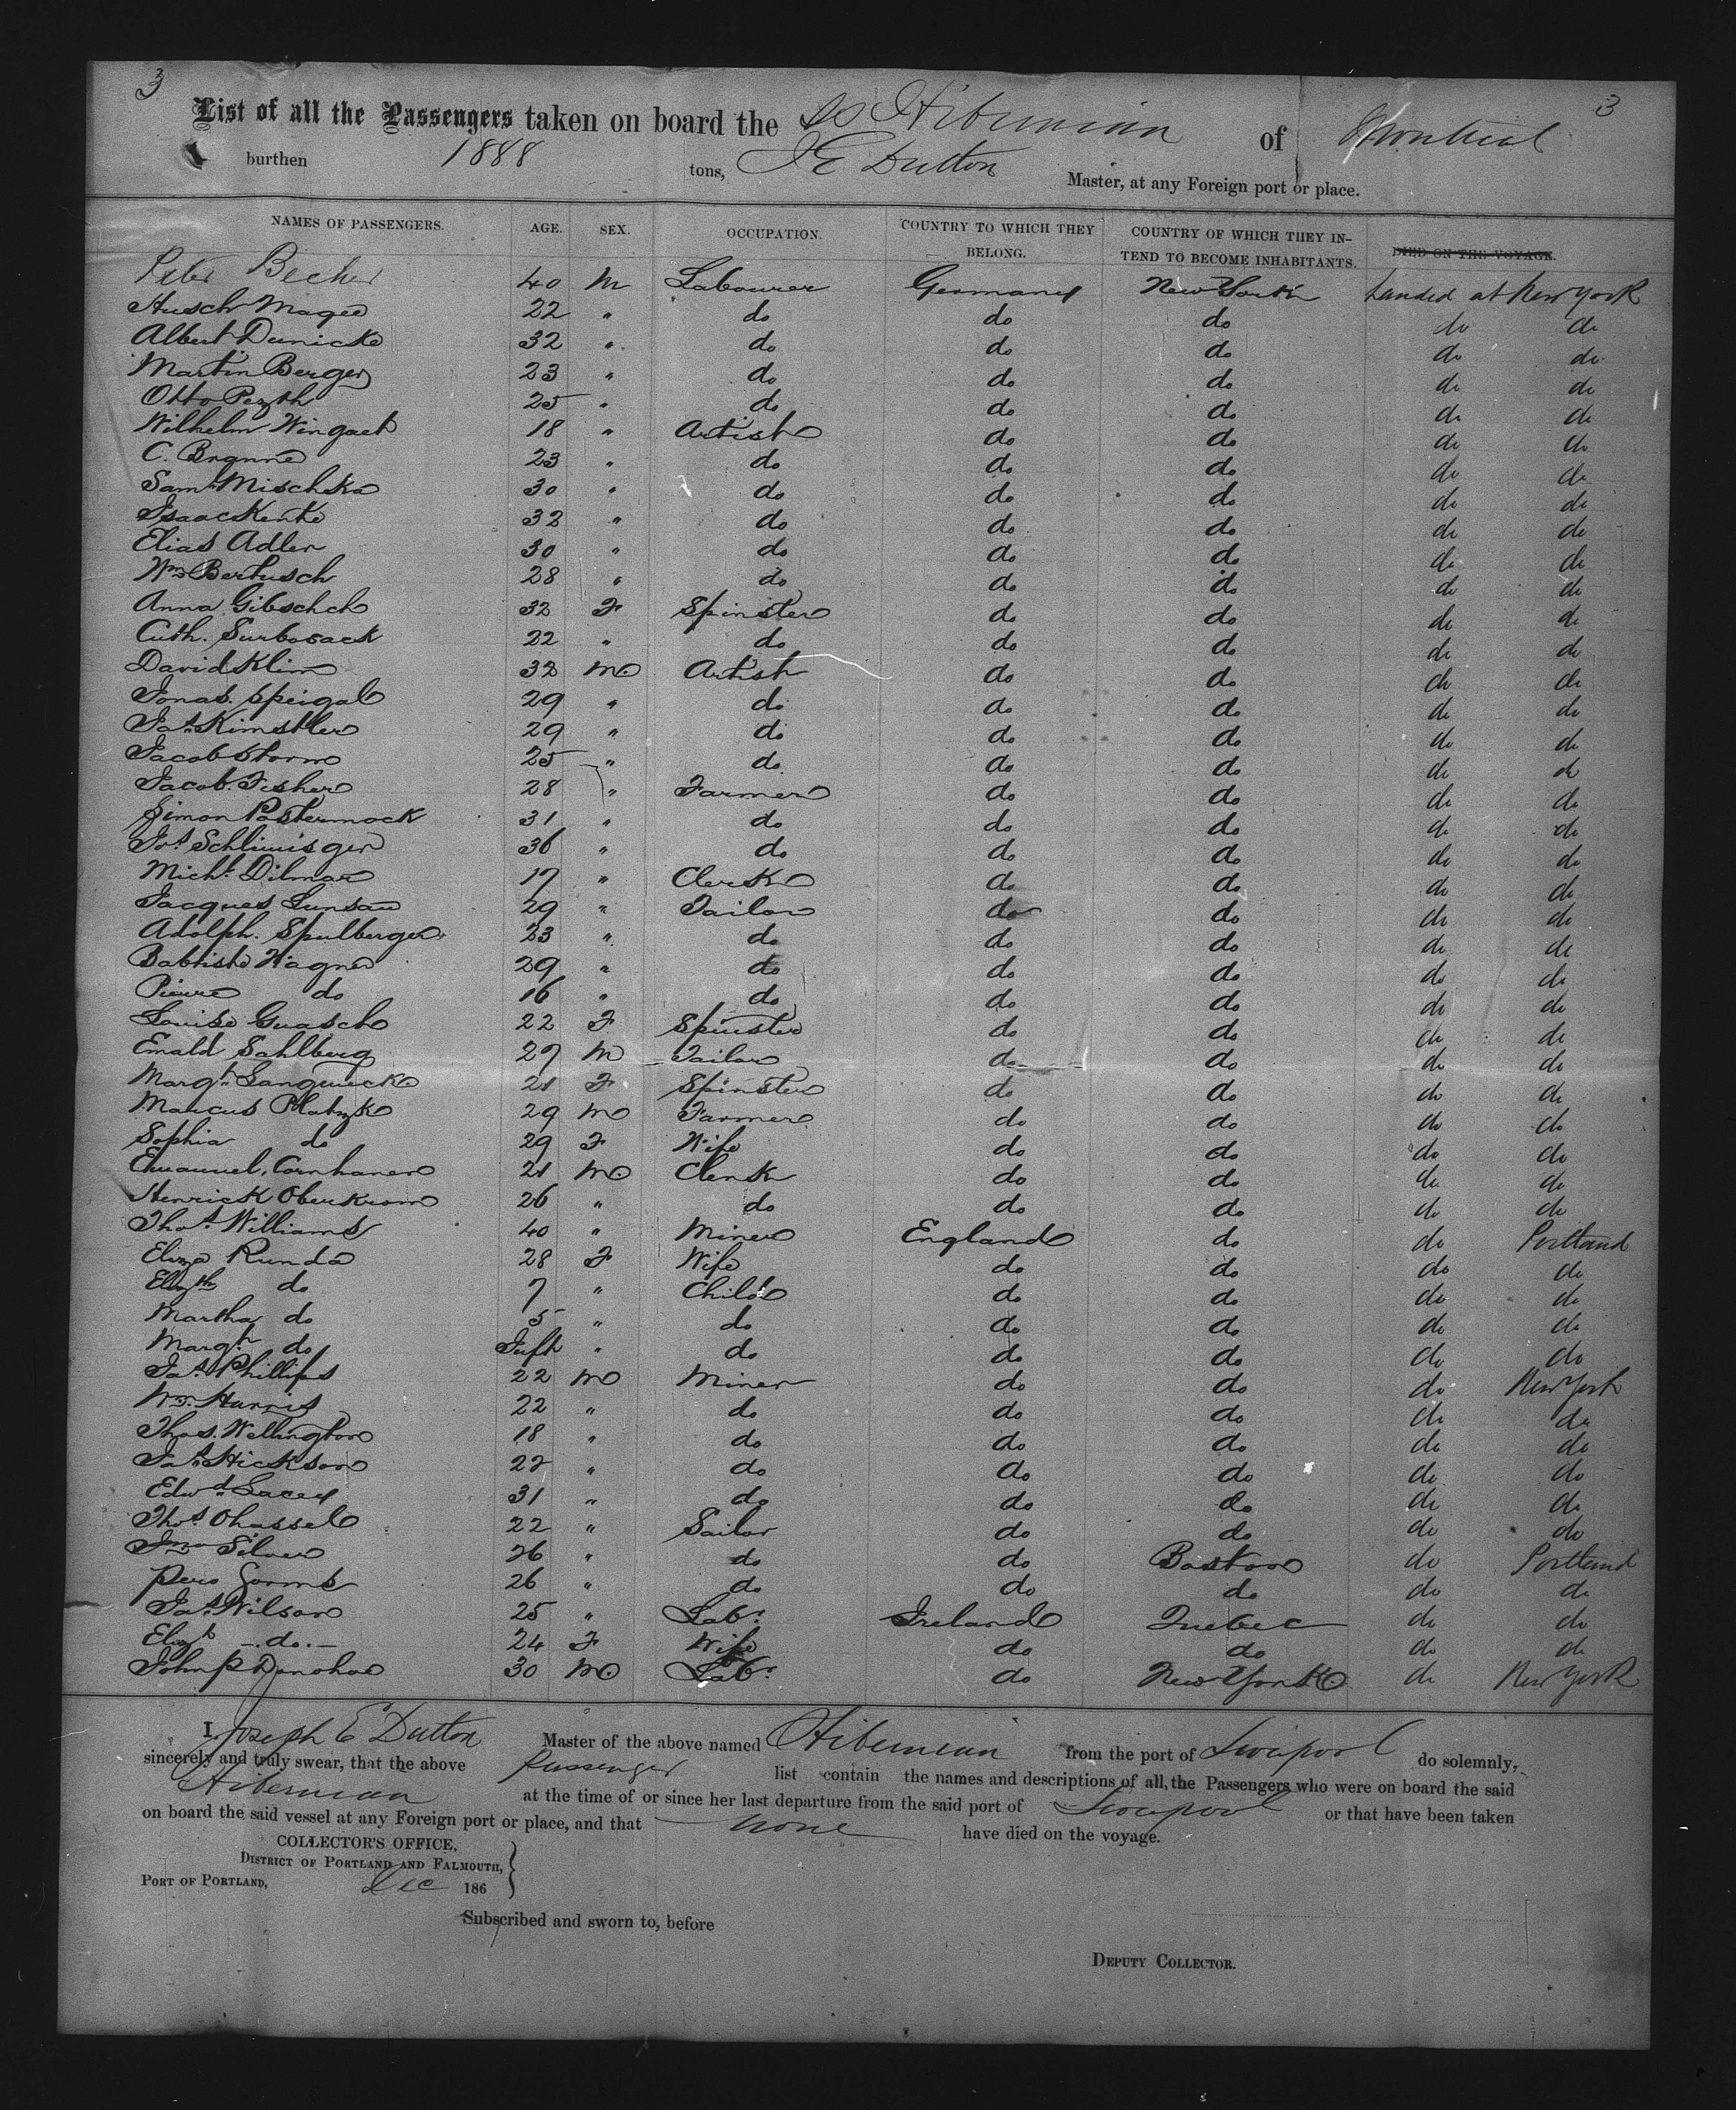 3 3
List of all the Passengers taken on board the SS Hibernian of Montreal
burthen 1888 tons, J E Dutton Master, at any Foreign port or place.
NAMES OF PASSENGERS. AGE. SEX. OCCUPATION. COUNTRY TO WHICH THEY BELONG. COUNTRY OF WHICH THEY INTEND TO BECOME INHABITANTS. DIED ON THE VOYAGE.
Peter Becker 40 M Labourer Germany New York Landed at New York
Husch Magee 22 " do do do do do
Albert Dunicke 32 " do do do do do
Martin Berger 23 " do do do do do
Otto Pezth 25 " do do do do do
Wilhelm Wingaet 18 " Artist do do do do
C. Branne 23 " do do do do do
Saml Mischka 30 " do do do do do
Isaac Kenke 32 " do do do do do
Elias Adler 30 " do do do do do
Wm Bertusch 28 " do do do do do
Anna Gibschek 32 F Spinster do do do do
Cath. Surbosack 22 " do do do do do
David Klim 32 M Artist do do do do
Jonas. Speigal 29 " do do do do do
Jas Kimstler 29 " do do do do do
Jacob Storm 25 " do do do do do
Jacob. Fisher 28 " Farmer do do do do
Simon Postermock 31 " do do do do do
Jos Schlimisger 36 " do do do do do
Michl Dilmar 17 " Clerk do do do do
Jacques Lunsau 29 " Tailor do do do do
Adolph. Spulberger 23 " do do do do do
Babtiste Wagner 29 " do do do do do
Pierre do 16 " do do do do do
Louise Guasch 22 F Spinster do do do do
Emald Sahlberg 27 M Tailor do do do do
Margt Langwicke 21 F Spinster do do do do
Marcus Platzk 29 M Farmer do do do do
Sophia do 29 F Wife do do do do
Emanuel. Cornhaner 21 M Clerk do do do do
Henrick Oberkrom 26 " do do do do do
Thos Williams 40 " Miner England do do Portland
Eliza Runda 28 F Wife do do do do
Elizth do 7 " Child do do do do
Martha do 5 " do do do do do
Margt do Inft " do do do do do
Jas Phillips 22 M Miner do do do New York
Wm. Harris 22 " do do do do do
Thos. Wellington 18 " do do do do do
Jas Hickson 22 " do do do do do
Edwd Lacey 31 " do do do do do
Thos Chassel 22 " Sailor do do do do
Jno Silver 26 " do do Boston do Portland
Pero Gorms 26 " do do do do do
Jas. Wilson 25 " Labr Ireland Quebec do do
Elizt -.do.- 24 F Wife do do do do
John P Donohoe 30 M Labr do New York do New York
I, Joseph E Dutton Master of the above named Hibernian from the port of Liverpool do solemnly,
sincerely and truly swear, that the above passenger list contain the names and descriptions of all, the Passengers who were on board the said
Hibernian at the time of or since her last departure from the said port of Liverpool or that have been taken
on board the said vessel at any Foreign port or place, and that none have died on the voyage.
COLLECTOR'S OFFICE,
DISTRICT OF PORTLAND AND FALMOUTH,
PORT OF PORTLAND, Dec 186
Subscribed and sworn to, before
DEPUTY COLLECTOR.